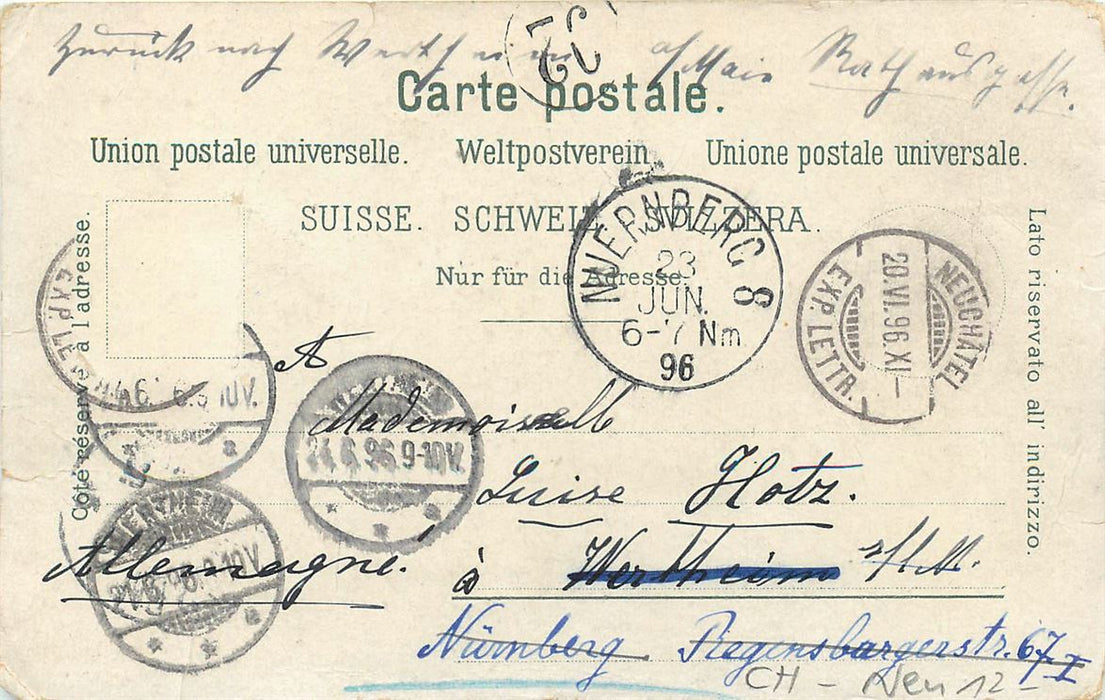 Zurück nach Wertheim a/Main Rathausgasse.
Carte postale.
Union postale universelle. Weltpostverein. Unione postale universale.
SUISSE. SCHWEIZ. SVIZZERA.
Nur für die Adresse.
Côté réservé à l'adresse.
Lato riservato all' indirizzo.
NUERNBERG 8
23
JUN.
6-7 Nm
96
NEUCHÂTEL
20.VI.96.XI-
EXP. LETTR.
EXP. LE
6.9-10V.
24.6.96.9-10V.
WERTHEIM
A
Mademoiselle
Luise Hotz.
Allemagne. à Wertheim a/M.
Nürnberg Regensburgerstr. 67 I
CH - Neu 12